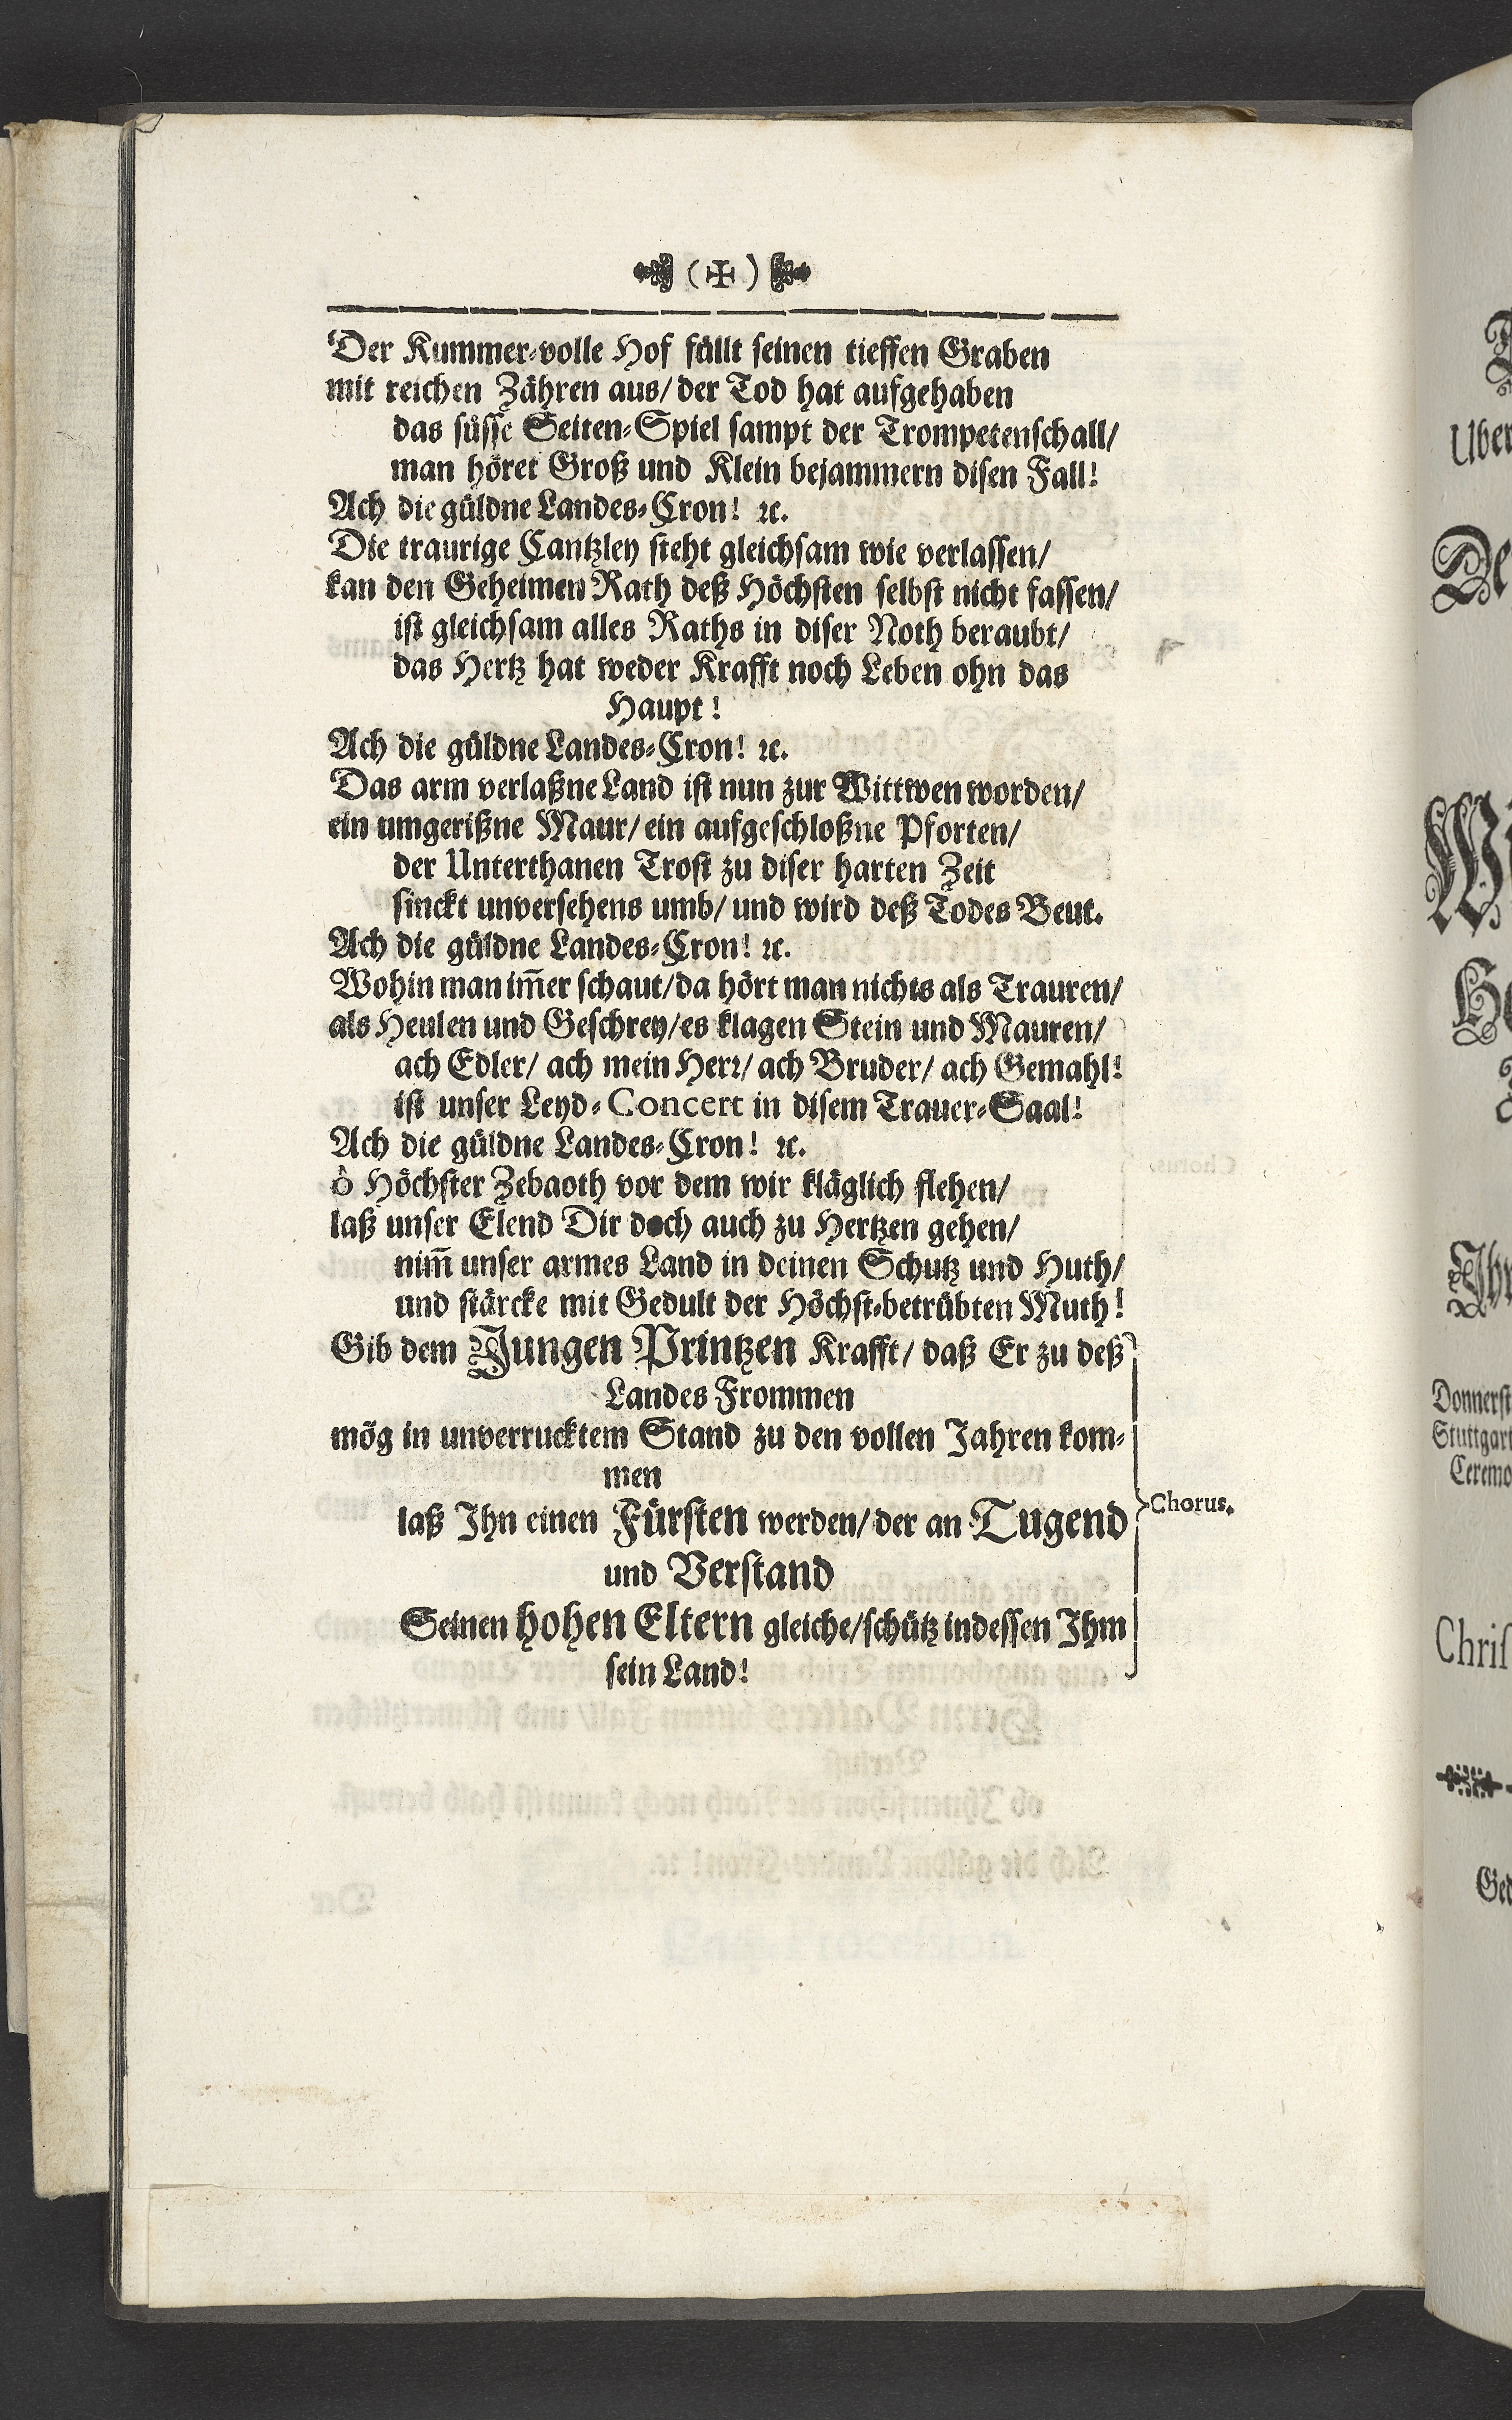 (✠)
Der Kummer-volle Hof füllt seinen tieffen Graben
mit reichen Zähren aus/ der Tod hat aufgehaben
das süsse Seiten-Spiel sampt der Trompetenschall/
man höret Groß und Klein bejammern disen Fall!
Ach die güldne Landes-Cron! ꝛc.
Die traurige Cantzley steht gleichsam wie verlassen/
kan den Geheimen Rath deß Höchsten selbst nicht fassen/
ist gleichsam alles Raths in diser Noth beraubt/
das Hertz hat weder Krafft noch Leben ohn das
Haupt!
Ach die güldne Landes-Cron! ꝛc.
Das arm verlaßne Land ist nun zur Wittwen worden/
ein umgerißne Maur/ ein aufgeschloßne Pforten/
der Unterthanen Trost zu diser harten Zeit
sinckt unversehens umb/ und wird deß Todes Beut.
Ach die güldne Landes-Cron! ꝛc.
Wohin man im̃er schaut/ da hört man nichts als Trauren/
als Heulen und Geschrey/ es klagen Stein und Mauren/
ach Edler/ ach mein Herꝛ/ ach Bruder/ ach Gemahl!
ist unser Leyd-Concert in disem Trauer-Saal!
Ach die güldne Landes-Cron! ꝛc.
ô Höchster Zebaoth vor dem wir kläglich flehen/
laß unser Elend Dir doch auch zu Hertzen gehen/
nim̃ unser armes Land in deinen Schutz und Huth/
und stärcke mit Gedult der Höchst-betrübten Muth!
Gib dem Jungen Printzen Krafft/ daß Er zu deß
Landes Frommen
mög in unverrucktem Stand zu den vollen Jahren kom-
men
laß Ihn einen Fürsten werden/ der an Tugend
und Verstand
Seinen hohen Eltern gleiche/ schütz indessen Ihm
sein Land!
Chorus.
Uber
De
Donnerst
Stuttgart
Ceremo
Chris
Ged